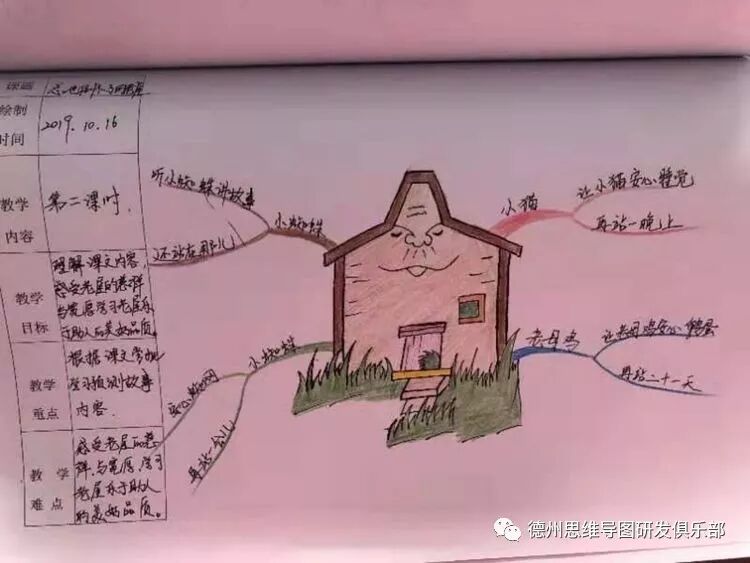 课题
绘制
时间
2019.10.16
教学
内容
第二课时.
教学
目标
理解课文内容,
感受老屋的慈祥
与宽厚学习老屋乐
于助人的美好品质。
教学
重点
根据课文
学习预测故事
内容.
教学
难点
感受老屋的慈
祥,与宽厚,学习
老屋乐于助人
的美好品质。
小猫
让小猫安心睡觉
再站一晚上
老母鸡
让老母鸡安心孵蛋
再站二十一天
小蜘蛛
再站一会儿
小蜘蛛
听小蜘蛛讲故事
还站在那儿
德州思维导图研发俱乐部